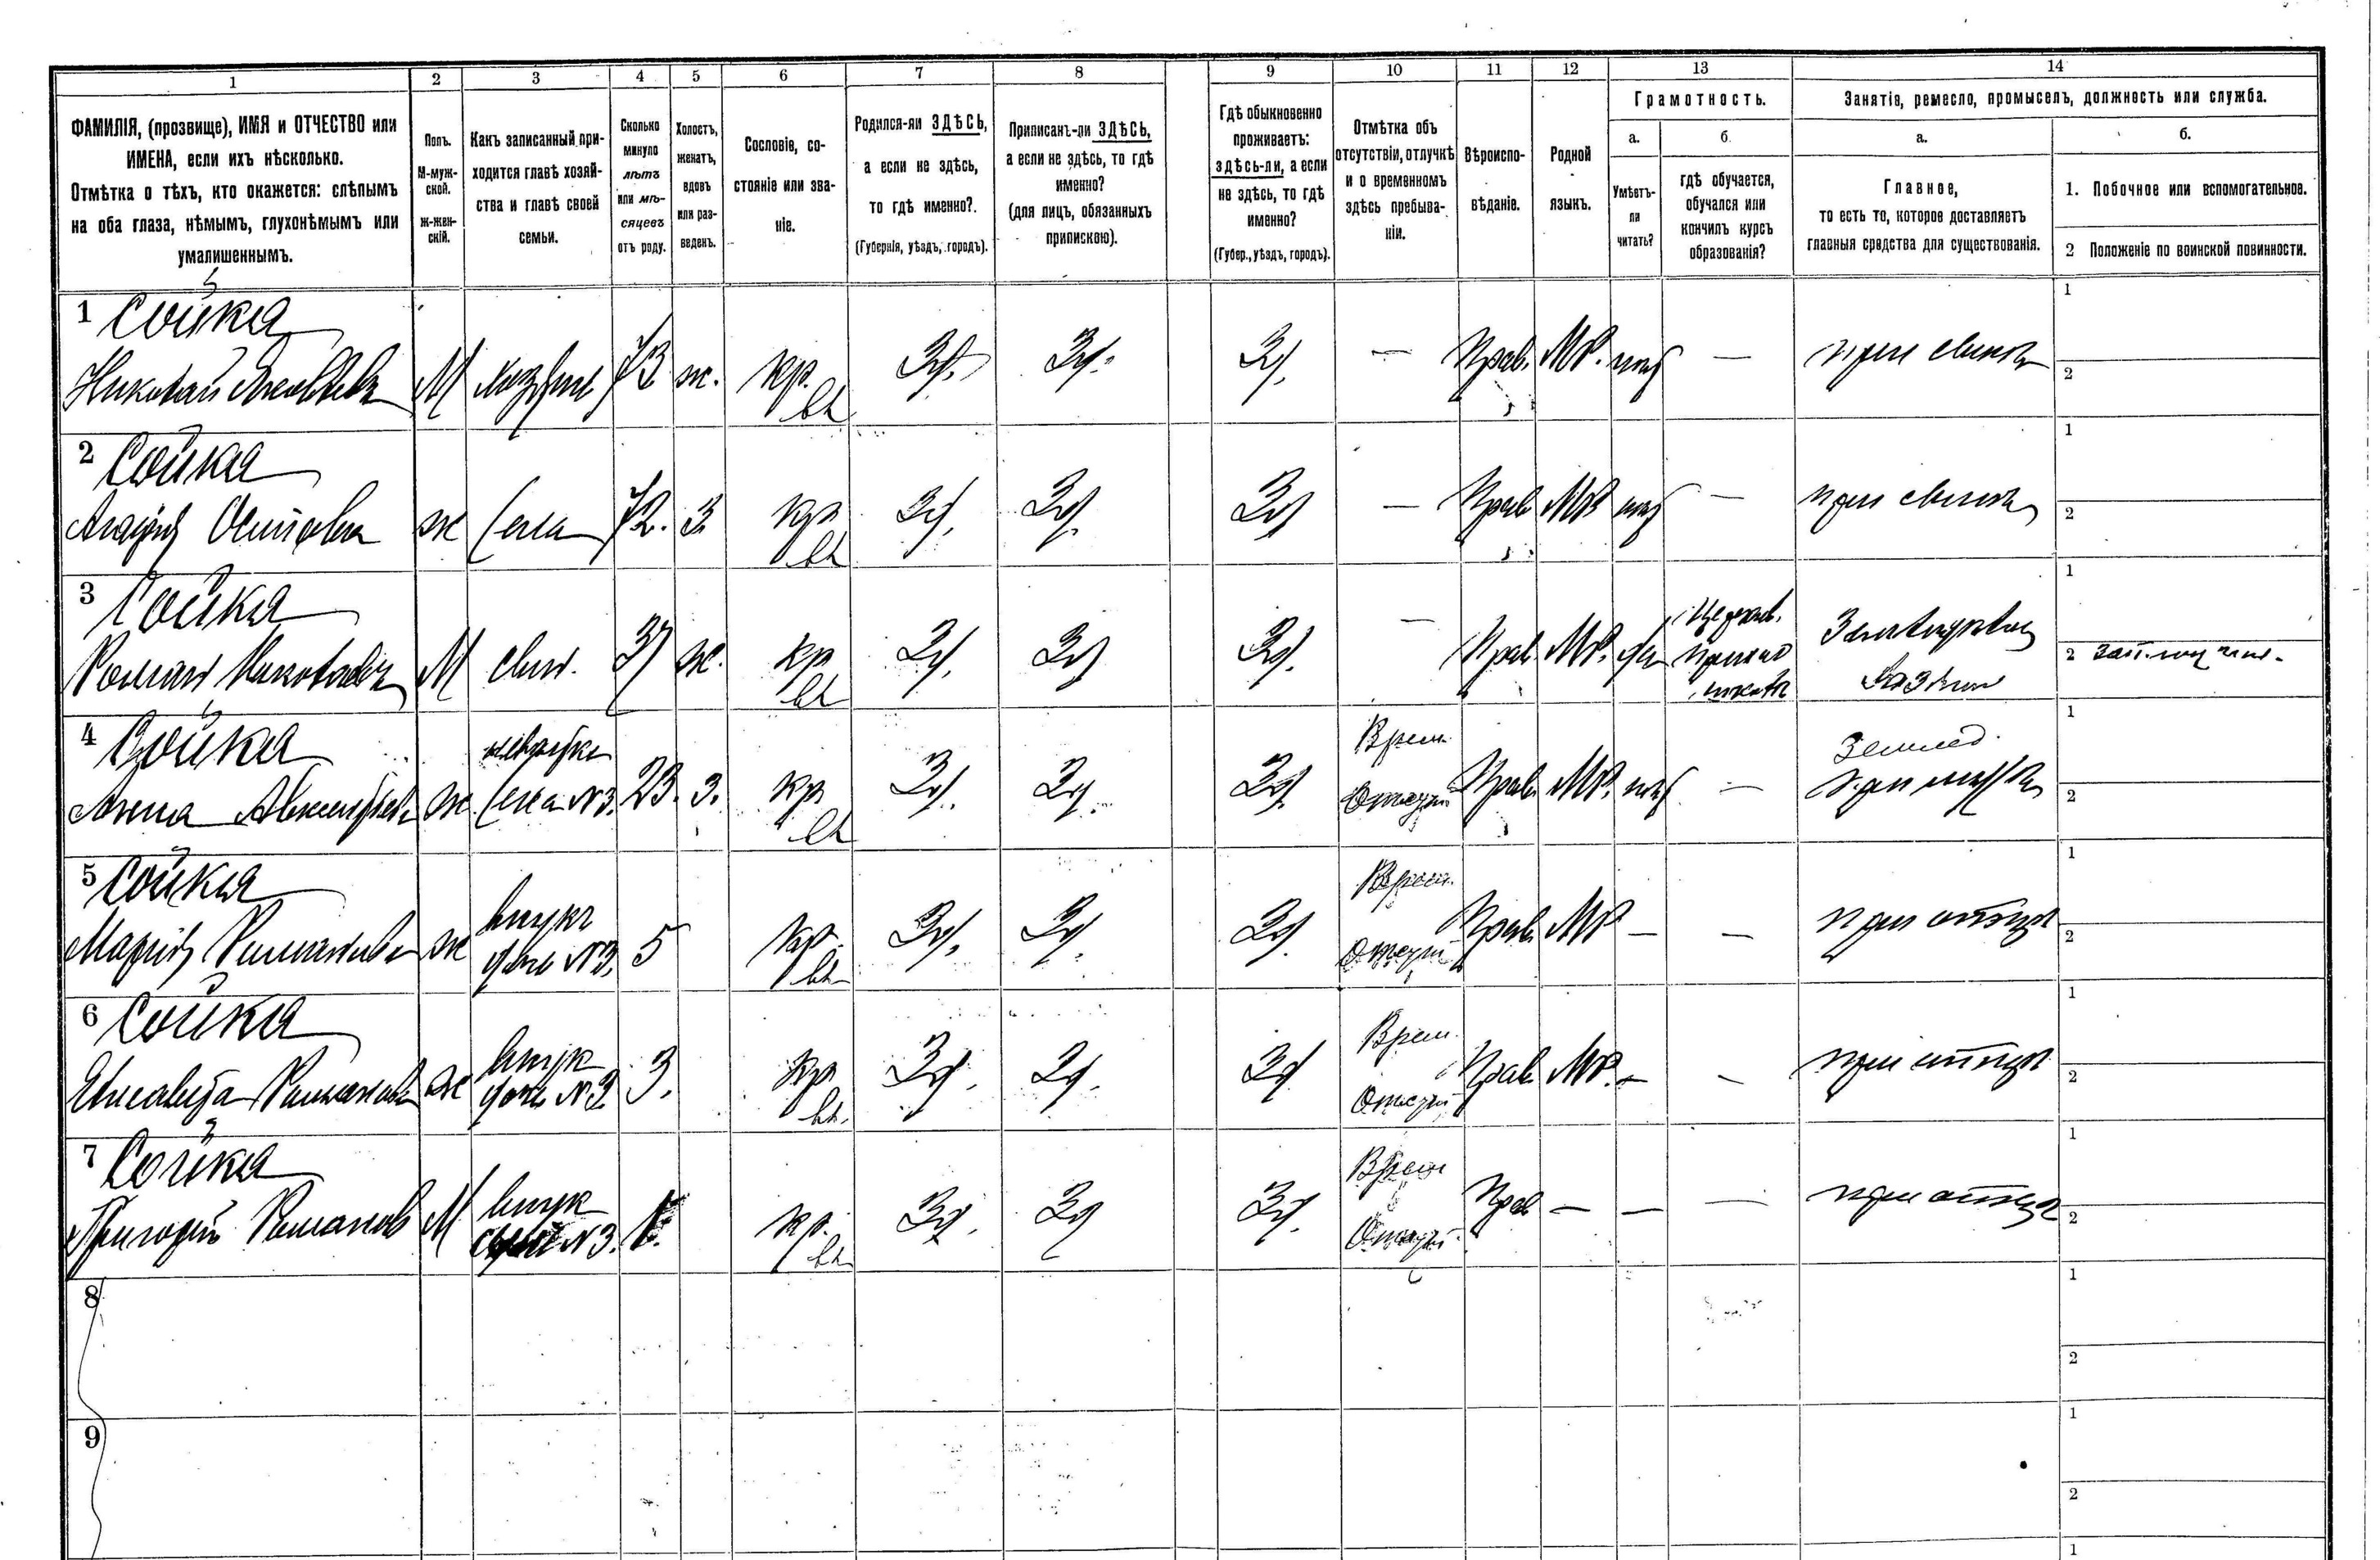 1
2
3
4
5
6
7
8
9
10
11
12
13
14
ФАМИЛІЯ, (прозвище), ИМЯ и ОТЧЕСТВО или
ИМЕНА, если ихъ нѣсколько.
Отмѣтка о тѣхъ, кто окажется: слѣпымъ
на оба глаза, нѣмымъ, глухонѣмымъ или
умалишеннымъ.
Полъ.
М-муж-
ской.
ж-жен-
скій.
Какъ записанный при-
ходится главѣ хозяй-
ства и главѣ своей
семьи.
Сколько
минуло
лѣтъ
или мѣ-
сяцевъ
отъ роду.
Холостъ,
женатъ,
вдовъ
или раз-
веденъ.
Сословіе, со-
стояніе или зва-
ніе.
Родился-ли ЗДѢСЬ,
а если не здѣсь,
то гдѣ именно?.
(Губернія, уѣздъ, городъ).
Приписанъ-ли ЗДѢСЬ,
а если не здѣсь, то гдѣ
именно?
(для лицъ, обязанныхъ
припискою).
Гдѣ обыкновенно
проживаетъ:
здѣсь-ли, а если
не здѣсь, то гдѣ
именно?
(Губер., уѣздъ, городъ).
Отмѣтка объ
отсутствіи, отлучкѣ
и о временномъ
здѣсь пребыва-
ніи.
Вѣроиспо-
вѣданіе.
Родной
языкъ.
Грамотность.
а.
Умѣетъ-
ли
читать?
б.
гдѣ обучается,
обучался или
кончилъ курсъ
образованія?
Занятіе, ремесло, промыселъ, должность или служба.
а.
Главное,
то есть то, которое доставляетъ
главныя средства для существованія.
б.
1. Побочное или вспомогательное.
2 Положеніе по воинской повинности.
1 Сойка
Николай Яковлевъ М 73 ж. кр. Зд. Зд. Зд. — Прав. МР. — при сынѣ
вл
1
2
2 Сойка
Осипова ж 72. З кр Зд. Зд. Зд — Прав МР — при сынѣ
вл
1
2
3 Сойка
Романъ Николаевъ М сынъ. 37 ж. кр Зд. Зд Зд. — Прав. МР. да
вл
Церков.
Приход
школа
1
2
4 Сойка
Анна ж жена №3. 23. З. кр Зд. Зд. Зд. Прав. МР. — при мужѣ
невѣстка
вл
Врем.
Отсут.
Землед.
1
2
5 Сойка
Марія Романова ж дочь №3. 5 кр. Зд. Зд. Зд. Прав. МР — — при отцѣ
внука
вл
Врем.
Отсут.
1
2
6 Сойка
Елисавета Романова ж дочь №3 3. кр Зд. Зд. Зд Прав МР. — — при отцѣ
внук
вл.
Врем.
Отсут.
1
2
7 Сойка
Григорій Романовъ М №3. кр. Зд. Зд Зд. Прав — — — при отцѣ
внук
вл
Врем
Отсут.
1
2
8
1
2
9
1
2
1